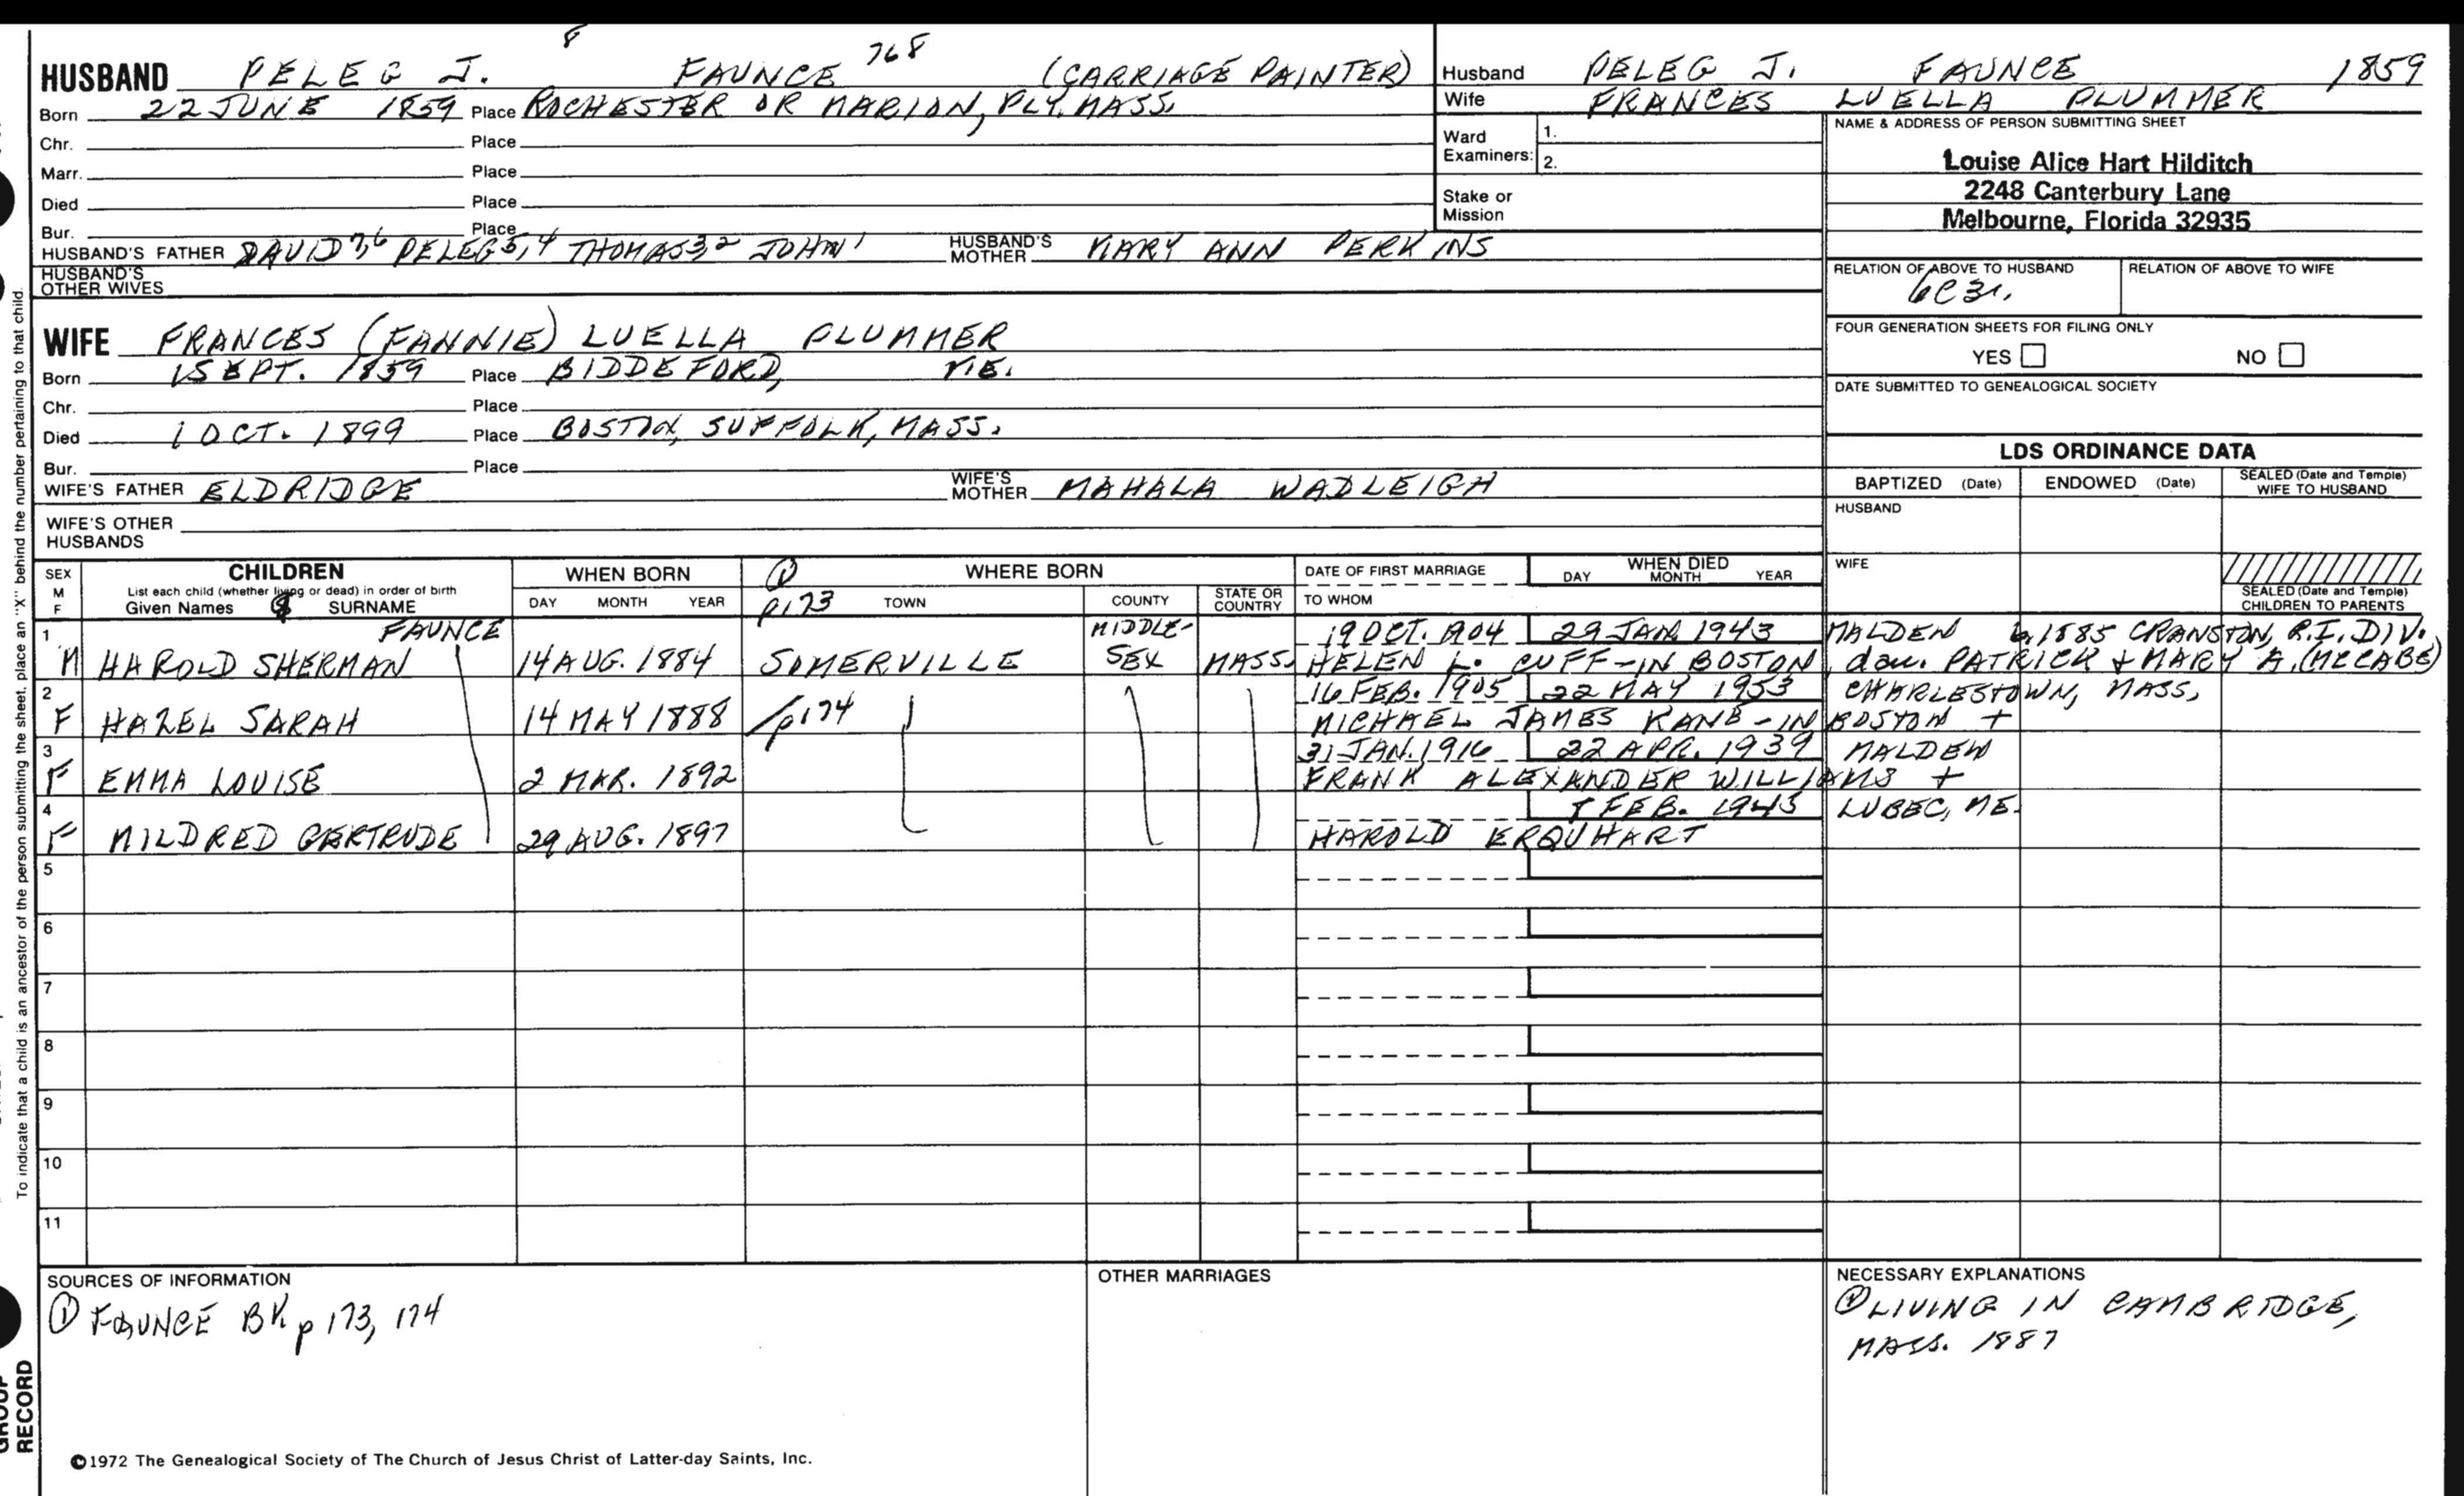 8 768
HUSBAND PELEG J. FAUNCE (CARRIAGE PAINTER)
Born 22 JUNE 1859 Place ROCHESTER OR MARION, PLY. MASS.
Chr. Place
Marr. Place
Died Place
Bur. Place
HUSBAND'S FATHER DAVID 7,6 PELEG 5,4 THOMAS 3 2 JOHN 1 HUSBAND'S MOTHER MARY ANN PERKINS
HUSBAND'S OTHER WIVES
WIFE FRANCES (FANNIE) LUELLA PLUMMER
Born 1 SEPT. 1859 Place BIDDEFORD, ME.
Chr. Place
Died 1 OCT. 1899 Place BOSTON, SUFFOLK, MASS.
Bur. Place
WIFE'S FATHER ELDRIDGE WIFE'S MOTHER MAHALA WADLEIGH
WIFE'S OTHER HUSBANDS
Husband PELEG J. FAUNCE 1859
Wife FRANCES LUELLA PLUMMER
Ward Examiners: 1.
2.
Stake or Mission
NAME & ADDRESS OF PERSON SUBMITTING SHEET
Louise Alice Hart Hilditch
2248 Canterbury Lane
Melbourne, Florida 32935
RELATION OF ABOVE TO HUSBAND RELATION OF ABOVE TO WIFE
6C3r.
FOUR GENERATION SHEETS FOR FILING ONLY
YES NO
DATE SUBMITTED TO GENEALOGICAL SOCIETY
LDS ORDINANCE DATA
BAPTIZED (Date) ENDOWED (Date) SEALED (Date and Temple) WIFE TO HUSBAND
HUSBAND
WIFE
SEALED (Date and Temple) CHILDREN TO PARENTS
SEX M F CHILDREN WHEN BORN ① WHERE BORN DATE OF FIRST MARRIAGE WHEN DIED
List each child (whether living or dead) in order of birth
Given Names SURNAME DAY MONTH YEAR p173 TOWN COUNTY STATE OR COUNTRY TO WHOM DAY MONTH YEAR
1 FAUNCE MIDDLE- 19 OCT. 1904 29 JAN 1943 MALDEN b. 1885 CRANSTON, R.I. DIV.
M HAROLD SHERMAN 14 AUG. 1884 SOMERVILLE SEX MASS. HELEN L. CUFF-IN BOSTON, dau. PATRICK + MARY A. (MCCABE)
2 16 FEB. 1905 22 MAY 1953 CHARLESTOWN, MASS.
F HAZEL SARAH 14 MAY 1888 p174 MICHAEL JAMES KANE-IN BOSTON +
3 31 JAN. 1916 22 APR. 1939 MALDEN
F EMMA LOUISE 2 MAR. 1892 FRANK ALEXANDER WILLIAMS +
4 FEB. 1945 LUBEC, ME.
F MILDRED GERTRUDE 29 AUG. 1897 HAROLD ERQUHART
5
6
7
8
9
10
11
SOURCES OF INFORMATION
① FAUNCE BK p 173, 174
OTHER MARRIAGES
NECESSARY EXPLANATIONS
① LIVING IN CAMBRIDGE,
MASS. 1887
To indicate that a child is an ancestor of the person submitting the sheet, place an "X" behind the number pertaining to that child.
GROUP RECORD
©1972 The Genealogical Society of The Church of Jesus Christ of Latter-day Saints, Inc.